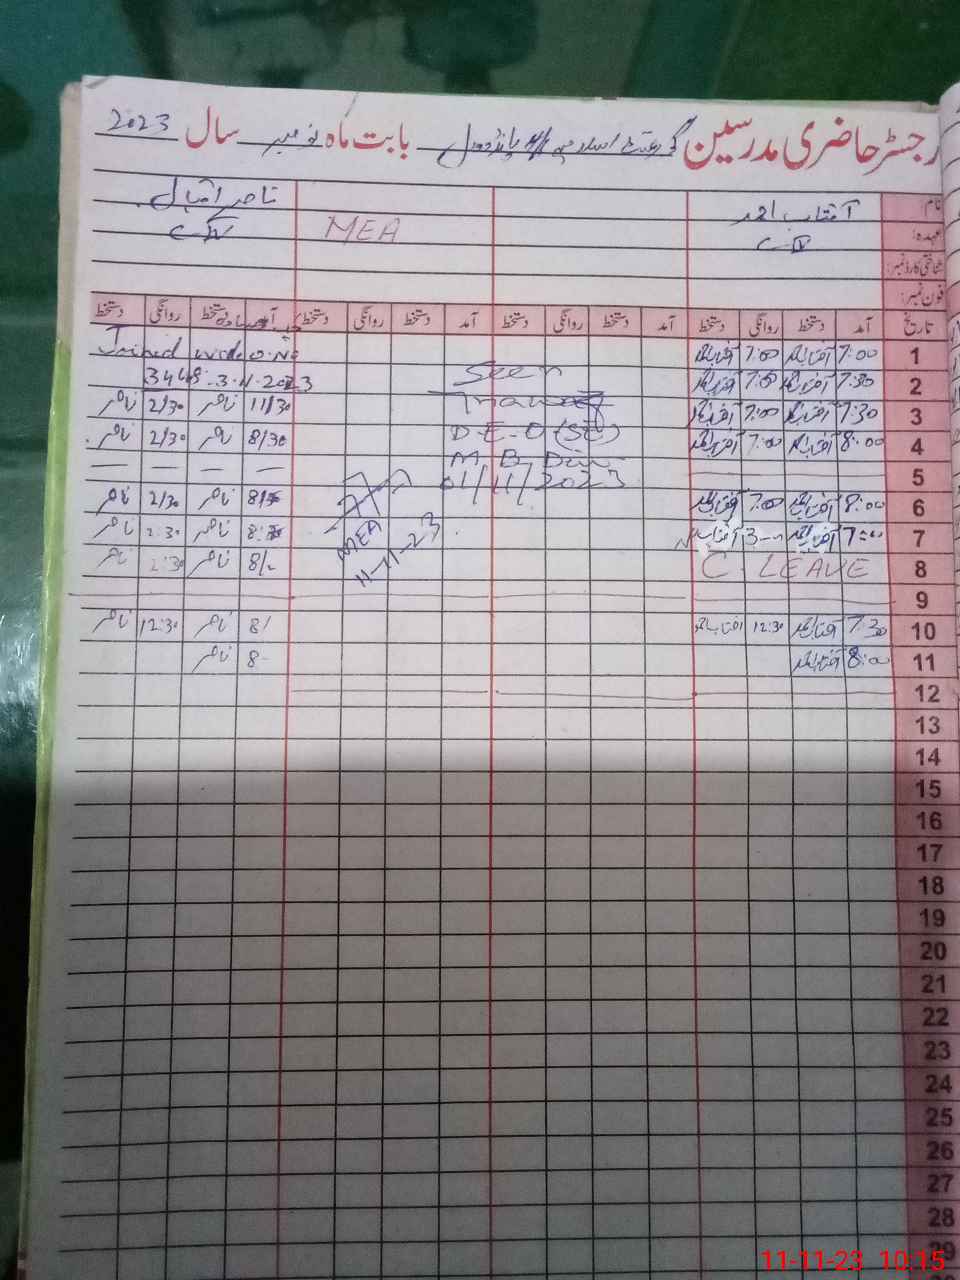 رجسٹر حاضری مدرسین بابت ماہ نومبر سال 2023
نام: آفتاب احمد ناصر اقبال
عہدہ: C-IV MEA C-IV
شناختی کارڈ نمبر:
فون نمبر:
تاریخ آمد دستخط روانگی دستخط آمد دستخط روانگی دستخط آمد دستخط روانگی دستخط آمد دستخط روانگی دستخط
1 7:00 آفتاب احمد 7:00 آفتاب احمد Joined O.No
2 7:30 آفتاب احمد 7:00 آفتاب احمد Seen 3448 3-11-2023
3 7:30 آفتاب احمد 7:00 آفتاب احمد 11/30 ناصر 2/30 ناصر
4 8:00 آفتاب احمد 7:00 آفتاب احمد D.E.O (SE) 8/30 ناصر 2/30 ناصر
5 M.B.Din 01/11/2023
6 8:00 آفتاب احمد 7:00 آفتاب احمد ناصر 2/30 ناصر
7 آفتاب احمد آفتاب احمد MEA ناصر 2:30 ناصر
8 C. LEAVE 11-11-23 8/- ناصر 2:30 ناصر
9
10 7:30 آفتاب احمد 12:30 آفتاب احمد 8/ ناصر 12:30 ناصر
11 8:00 آفتاب احمد 8- ناصر
12
13
14
15
16
17
18
19
20
21
22
23
24
25
26
27
28
29
11-11-23 10:15